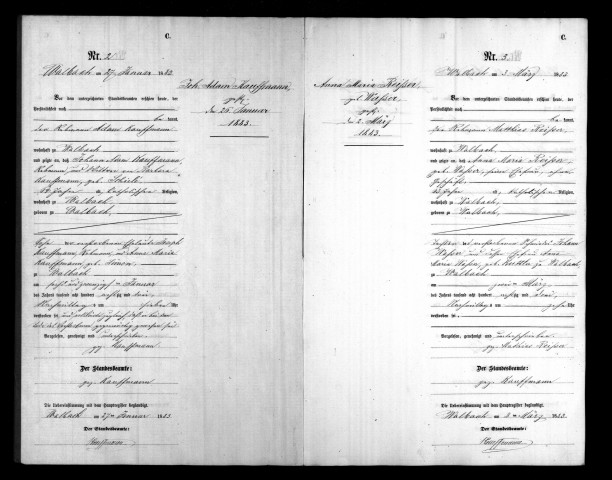 C.
Nr. 2
Walbach am 27 Januar 1883
Vor dem unterzeichneten Standesbeamten erschien heute, der
Persönlichkeit nach
be kannt,
der Rebmann Adam Kauffmann
wohnhaft zu Walbach
und zeigte an, daß Johann Adam Kauffmann,
Rebmann, und Wittwer von Barbara
Kauffmann, geb.
Jahre, Katholischer Religion,
wohnhaft zu Walbach
geboren zu Walbach,
Sohn der verstorbenen Eheleute Joseph
Kauffmann, Rebmann und Anna Maria
Kauffmann, geb. Simon
zu Walbach
am Januar
des Jahres tausend acht hundert achtzig und drei,
Nachmittags um sieben Uhr
verstorben sei,
Vorgelesen, genehmigt und unterschrieben
gez. Kauffmann
Der Standesbeamte:
gez. Kauffmann
Die Uebereinstimmung mit dem Hauptregister beglaubigt.
Walbach am 27 ten Januar 1883
Der Standesbeamte:
Kauffmann
Joh. Adam Kauffmann,
gest.
den 26 Januar
1883.
Anna Maria Reisser
geb. Wasser,
gest.
den 2 März
1883.
C.
Nr. 3
Walbach am 3 März 1883
Vor dem unterzeichneten Standesbeamten erschien heute, der
Persönlichkeit nach
be kannt,
der Rebmann Matthias Reisser,
wohnhaft zu Walbach,
und zeigte an, daß Anna Maria Reisser,
geb. Wasser, seine Ehefrau, ohne
Geschäft,
Jahre alt, Katholischer Religion,
wohnhaft zu Walbach,
geboren zu Walbach,
Tochter der verstorbenen Johann
Wasser und dessen Ehefrau Anna
Maria Wasser, geb. zu Walbach,
zu Walbach
am zweiten März
des Jahres tausend acht hundert achtzig und drei,
Nachmittags um Uhr
verstorben sei.
Vorgelesen, genehmigt und unterschrieben
gez. Mathias Reisser
Der Standesbeamte:
gez. Kauffmann
Die Uebereinstimmung mit dem Hauptregister beglaubigt.
Walbach am 3 ten März 1883
Der Standesbeamte:
Kauffmann